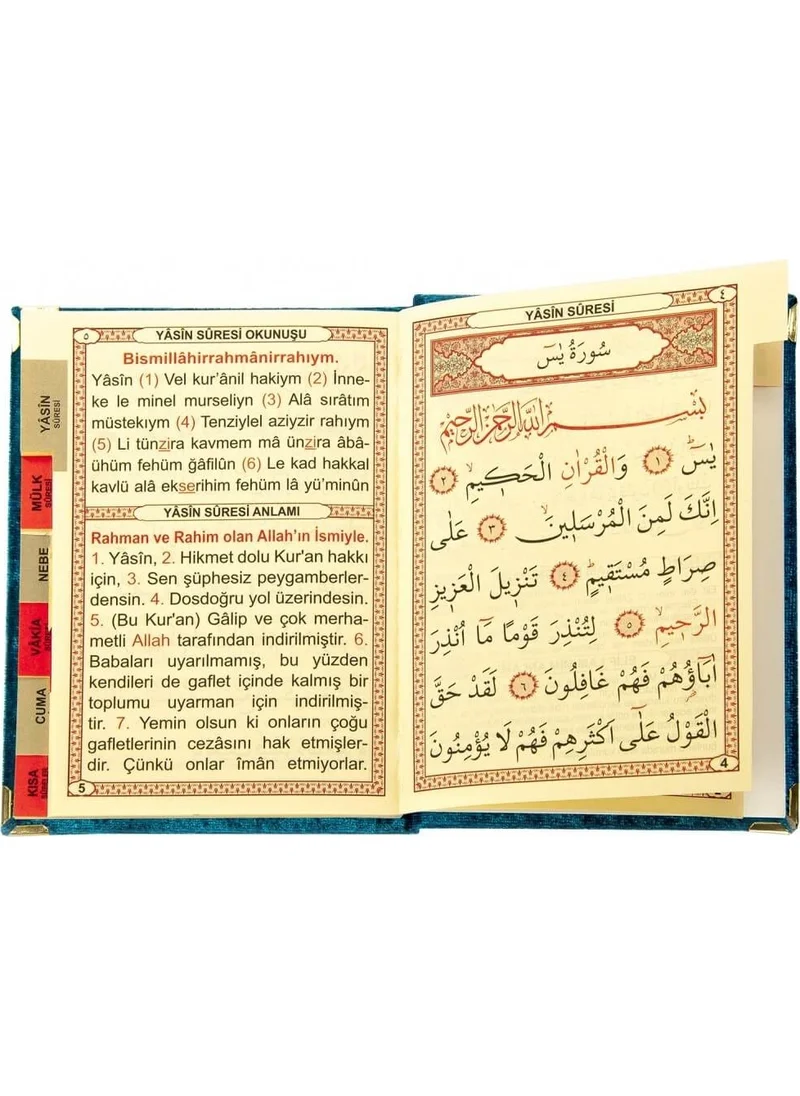 ٤
YÂSİN SÛRESİ
سُورَةُ يٰسٓ
بِسْمِ اللّٰهِ الرَّحْمٰنِ الرَّحٖيمِ
يٰسٓ ۚ ﴿١﴾ وَالْقُرْاٰنِ الْحَكٖيمِ ۙ ﴿٢﴾
اِنَّكَ لَمِنَ الْمُرْسَلٖينَ ۙ ﴿٣﴾ عَلٰى
صِرَاطٍ مُسْتَقٖيمٍ ۜ ﴿٤﴾ تَنْزٖيلَ الْعَزٖيزِ
الرَّحٖيمِ ۙ ﴿٥﴾ لِتُنْذِرَ قَوْمًا مَٓا اُنْذِرَ
اٰبَٓاؤُ۬هُمْ فَهُمْ غَافِلُونَ ﴿٦﴾ لَقَدْ حَقَّ
الْقَوْلُ عَلٰٓى اَكْثَرِهِمْ فَهُمْ لَا يُؤْمِنُونَ
4
٥
YÂSİN SÛRESİ OKUNUŞU
Bismillâhirrahmânirrahıym.
Yâsîn (1) Vel kur’ânil hakiym (2) İnne-
ke le minel murseliyn (3) Alâ sırâtım
müstekıym (4) Tenziylel aziyzir rahıym
(5) Li tünzira kavmem mâ ünzira âbâ-
ühüm fehüm ğafilûn (6) Le kad hakkal
kavlü alâ ekserihim fehüm lâ yü’minûn
YÂSİN SÛRESİ ANLAMI
Rahman ve Rahim olan Allah’ın İsmiyle.
1. Yâsîn, 2. Hikmet dolu Kur'an hakkı
için, 3. Sen şüphesiz peygamberler-
densin. 4. Dosdoğru yol üzerindesin.
5. (Bu Kur'an) Gâlip ve çok merha-
metli Allah tarafından indirilmiştir. 6.
Babaları uyarılmamış, bu yüzden
kendileri de gaflet içinde kalmış bir
toplumu uyarman için indirilmiş-
tir. 7. Yemin olsun ki onların çoğu
gafletlerinin cezâsını hak etmişler-
dir. Çünkü onlar îmân etmiyorlar.
5
YÂSİN
SÛRESİ
MÜLK
SÛRESİ
NEBE
VÂKIA
CUMA
KISA
SÛRELER